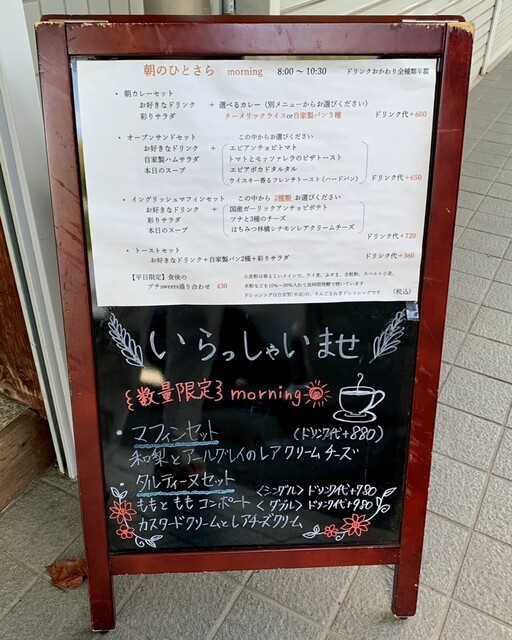 朝のひとさら morning 8:00～10:30 ドリンクおかわり全種類半額
・朝カレーセット
お好きなドリンク + 選べるカレー（別メニューからお選びください）
彩りサラダ ターメリックライスor自家製パン3種 ドリンク代+600
・オープンサンドセット この中からお選びください
お好きなドリンク + エビアンチョビトマト
自家製ハムサラダ トマトとモッツァレラのピザトースト
本日のスープ エビアボカドタルタル
ウイスキー香るフレンチトースト（ハードパン） ドリンク代+650
・イングリッシュマフィンセット この中から2種類お選びください
お好きなドリンク + 国産ガーリックアンチョビポテト
彩りサラダ ツナと3種のチーズ
本日のスープ はちみつ林檎シナモンレアクリームチーズ
ドリンク代+720
・トーストセット
お好きなドリンク+自家製パン2種+彩りサラダ ドリンク代+360
【平日限定】食後の 小麦粉は春よこいメインで、ライ麦、ふすま、全粒粉、スペルト小麦、
プチsweets盛り合わせ 430 米粉などを10%～30%入れて長時間発酵で焼いています
ドレッシングは自家製（米油）の、りんご玉ねぎドレッシングです （税込）
いらっしゃいませ
{数量限定} morning
・マフィンセット （ドリンク代+880）
和梨とアールグレイのレアクリームチーズ
・タルティーヌセット 〈シングル〉ドリンク代+780
ももとももコンポート 〈ダブル〉ドリンク代+980
カスタードクリームとレアチーズクリーム